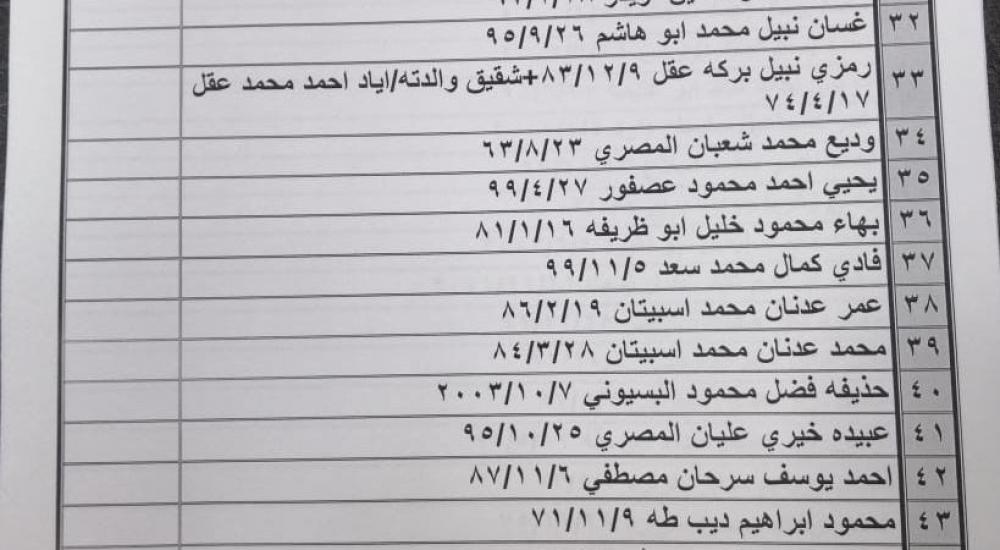 ٣٢ غسان نبيل محمد ابو هاشم ٩٥/٩/٢٦
٣٣ رمزي نبيل بركه عقل ٨٣/١٢/٩+شقيق والدته/اياد احمد محمد عقل
٧٤/٤/١٧
٣٤ وديع محمد شعبان المصري ٦٣/٨/٢٣
٣٥ يحيي احمد محمود عصفور ٩٩/٤/٢٧
٣٦ بهاء محمود خليل ابو ظريفه ٨١/١/١٦
٣٧ فادي كمال محمد سعد ٩٩/١١/٥
٣٨ عمر عدنان محمد اسبيتان ٨٦/٢/١٩
٣٩ محمد عدنان محمد اسبيتان ٨٤/٣/٢٨
٤٠ حذيفه فضل محمود البسيوني ٢٠٠٣/١٠/٧
٤١ عبيده خيري عليان المصري ٩٥/١٠/٢٥
٤٢ احمد يوسف سرحان مصطفي ٨٧/١١/٦
٤٣ محمود ابراهيم ديب طه ٧١/١١/٩